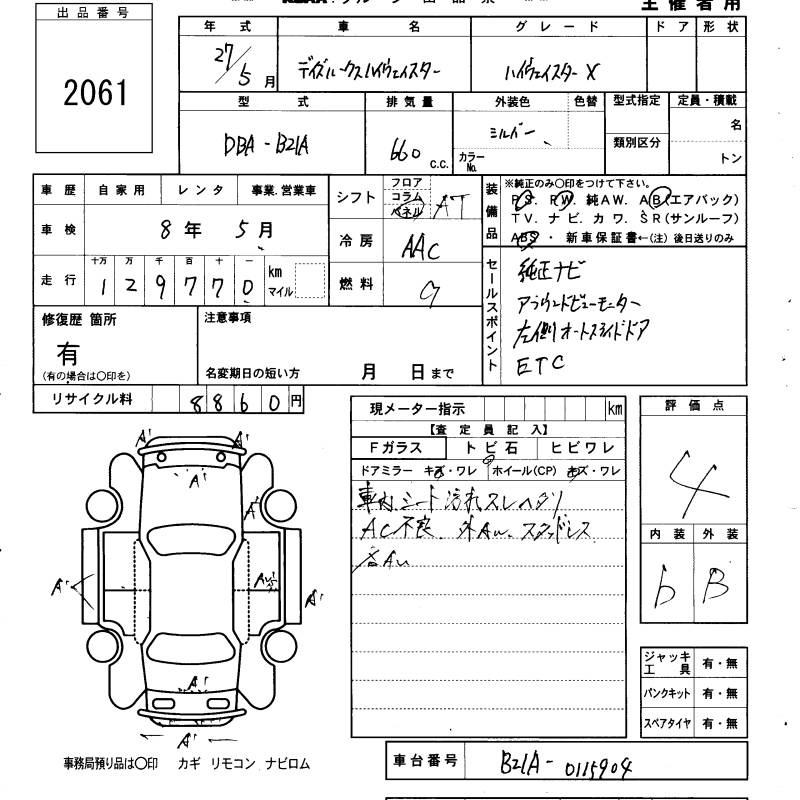 出品番号
2061
主催者用
年式 車名 グレード ドア 形状
27/5月 デイズルークスハイウェイスター ハイウェイスター X
型式 排気量 外装色 色替 型式指定 定員・積載
DBA-B21A 660 C.C. シルバー カラーNo. 類別区分 名
トン
車歴 自家用 レンタ 事業.営業車
車検 8年 5月
走行 十万 万 千 百 十 一 km マイル
1 2 9 7 7 0
シフト フロア コラム パネル AT
冷房 AAC
燃料 G
装備品 ※純正のみ○印をつけて下さい。
PS. PW. 純AW. AB(エアバック)
TV. ナビ. カワ. SR(サンルーフ)
ABS・ 新車保証書←(注) 後日送りのみ
セールスポイント
純正ナビ
アラウンドビューモニター
左側オートスライドドア
ETC
修復歴 箇所
有
(有の場合は○印を)
注意事項
名変期日の短い方 月 日まで
リサイクル料 8860円
現メーター指示 km
【査定員記入】
Fガラス トビ石 ヒビワレ
ドアミラー キズ・ワレ ホイール(CP) キズ・ワレ
車内シート汚れスレヘタリ
AC不良 外AU. スタッドレス
各AU
評価点
4
内装 外装
b B
ジャッキ工具 有・無
パンクキット 有・無
スペアタイヤ 有・無
A' A'
A'
A'
AU
A' A'
A'
A'
事務局預り品は○印 カギ リモコン ナビロム
車台番号 B21A-0115904